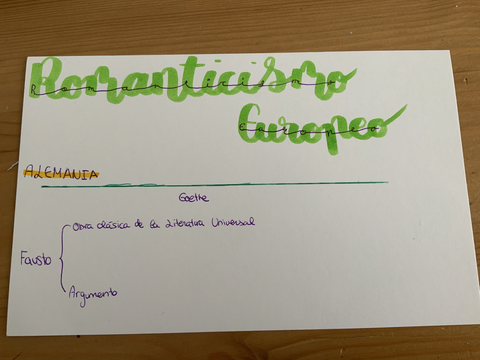 Romanticismo
Europeo
ALEMANIA
Goethe
Obra clásica de la Literatura Universal
Fausto
Argumento